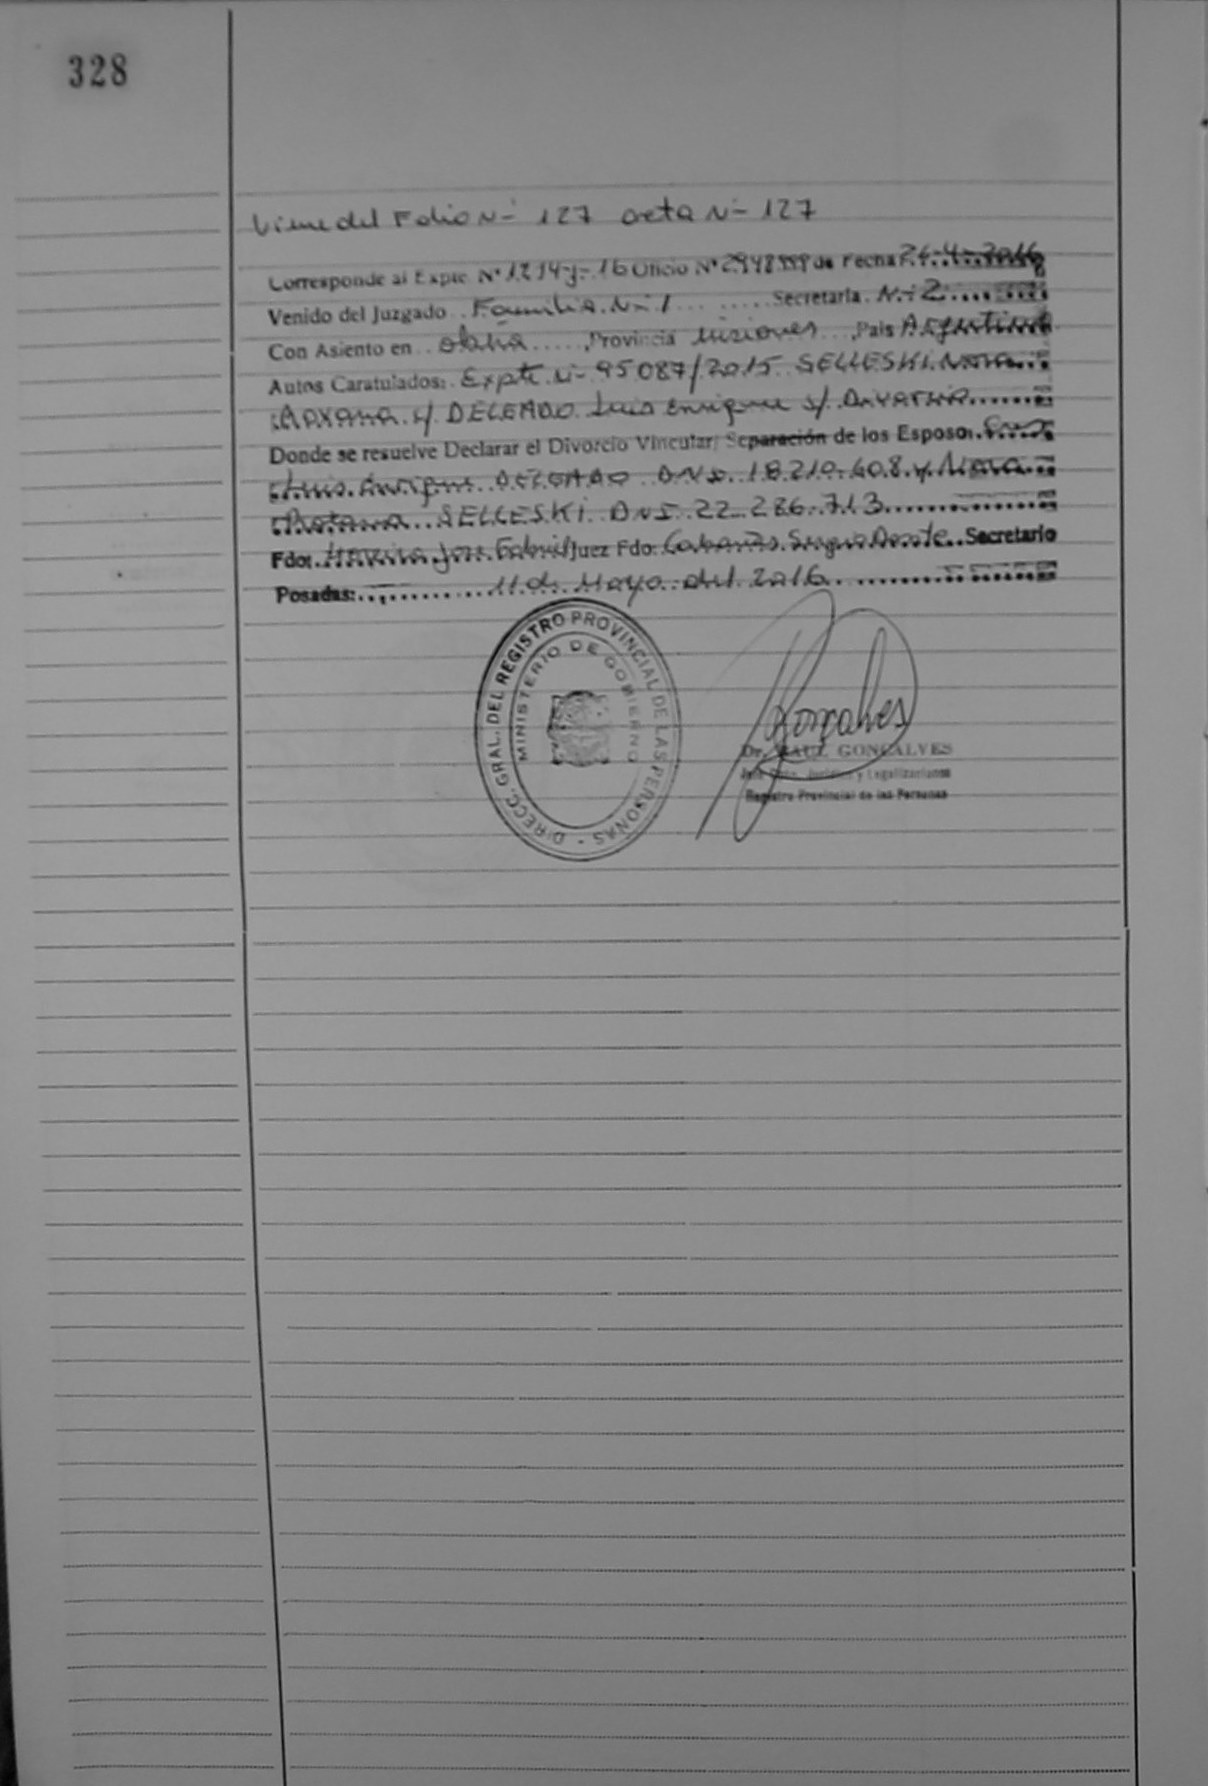 328
Viene del Folio N- 127 acta N- 127
Corresponde al Expte N° 1214-J-16 Oficio N° 2948 de Fecha 26-4-2016
Venido del Juzgado Familia N- 1 Secretaria N- 2
Con Asiento en Oberá, Provincia Misiones, Pais Argentina
Autos Caratulados: Expte N- 95087/2015 SELLESKI Nora
Roxana c/ DELGADO Luis Enrique s/ Divorcio
Donde se resuelve Declarar el Divorcio Vincular, Separación de los Esposos
Luis Enrique DELGADO DNI 18.210.608 y Nora
Roxana SELLESKI DNI 22.286.713
Fdo: Jose Gabriel Juez Fdo: Sergio Secretario
Posadas: 11 de Mayo del 2016
DIRECC. GRAL. DEL REGISTRO PROVINCIAL DE LAS PERSONAS -
MINISTERIO DE GOBIERNO
Gonçalves
Dr. RAUL GONÇALVES
Jefe Dpto. Jurídico y Legalizaciones
Registro Provincial de las Personas